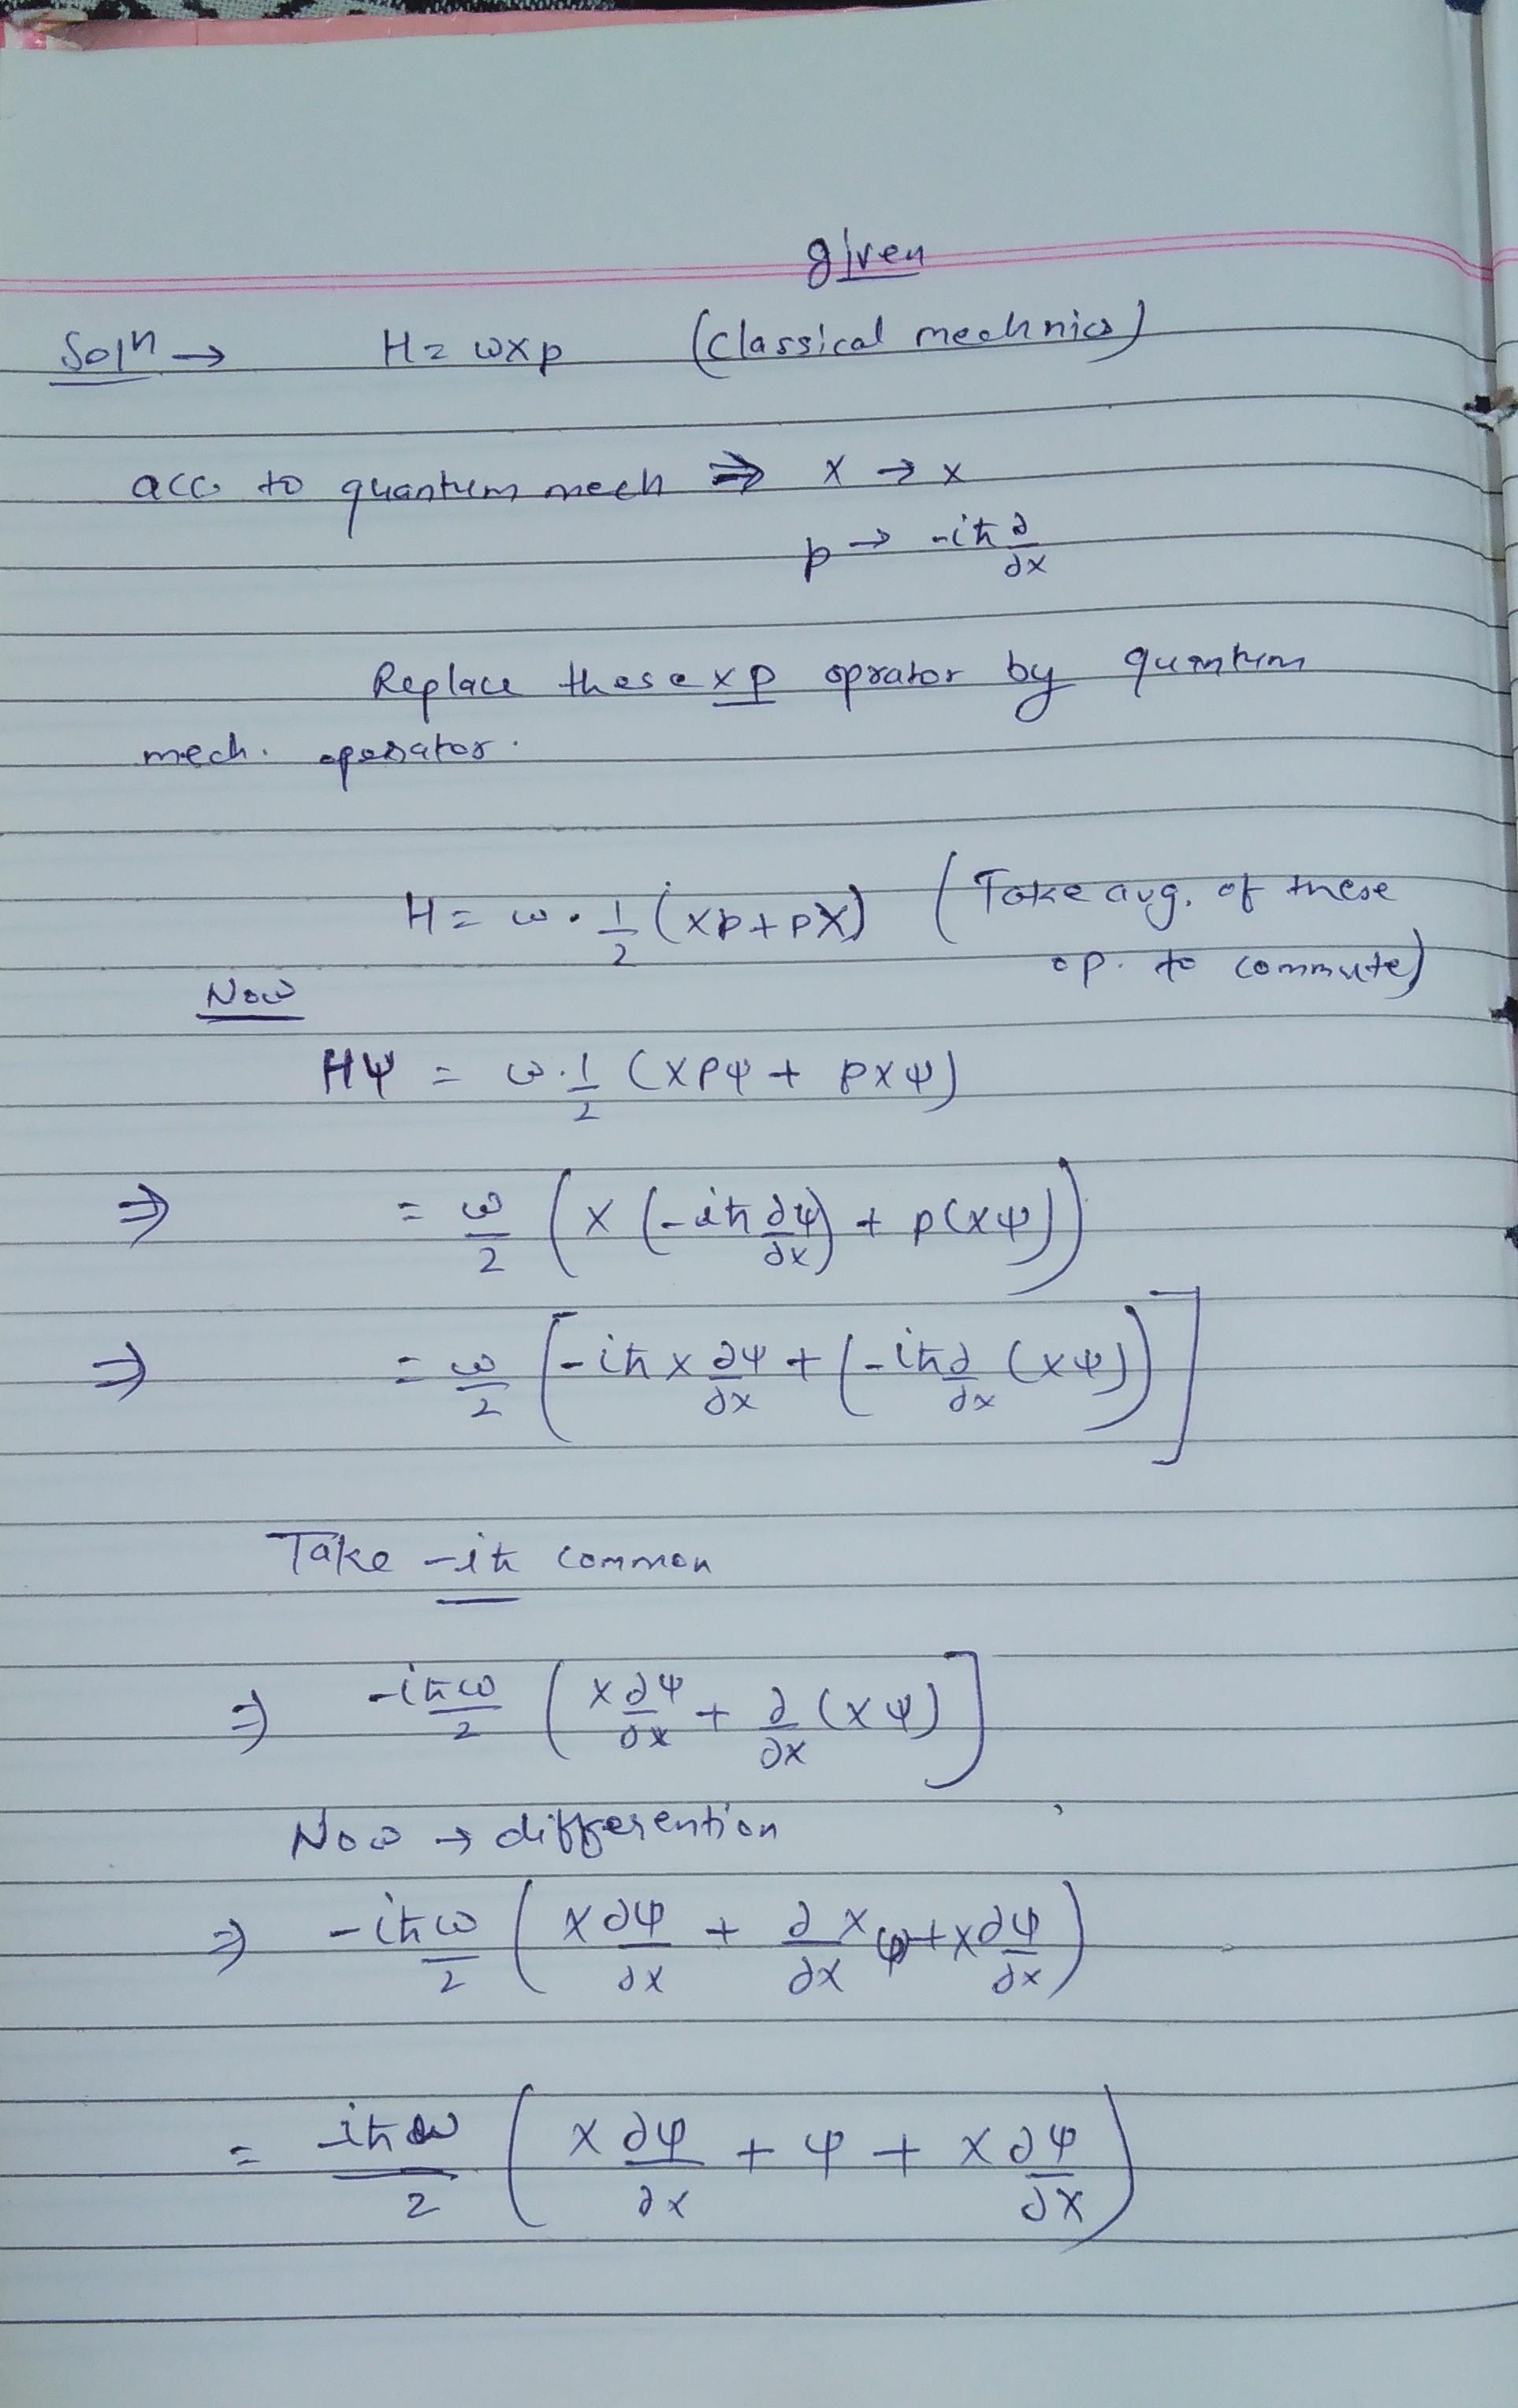 given
Solⁿ → H = ωxp (Classical mechnics)
acc to quantum mech ⇒ x → x
p → -iħ ∂/∂x
Replace these xp oprator by quantum
mech. operator.
H = ω · 1/2 (xp + px) (Take avg. of these
op. to commute)
Now
Hψ = ω · 1/2 (xpψ + pxψ)
⇒ = ω/2 (x (-iħ ∂ψ/∂x) + p(xψ))
⇒ = ω/2 [-iħ x ∂ψ/∂x + (-iħ ∂/∂x (xψ))]
Take -iħ common
⇒ -iħω/2 (x ∂ψ/∂x + ∂/∂x (xψ)]
Now → differention
⇒ -iħω/2 (x ∂ψ/∂x + ∂x/∂x ψ + x ∂ψ/∂x)
= iħω/2 (x ∂ψ/∂x + ψ + x ∂ψ/∂x)